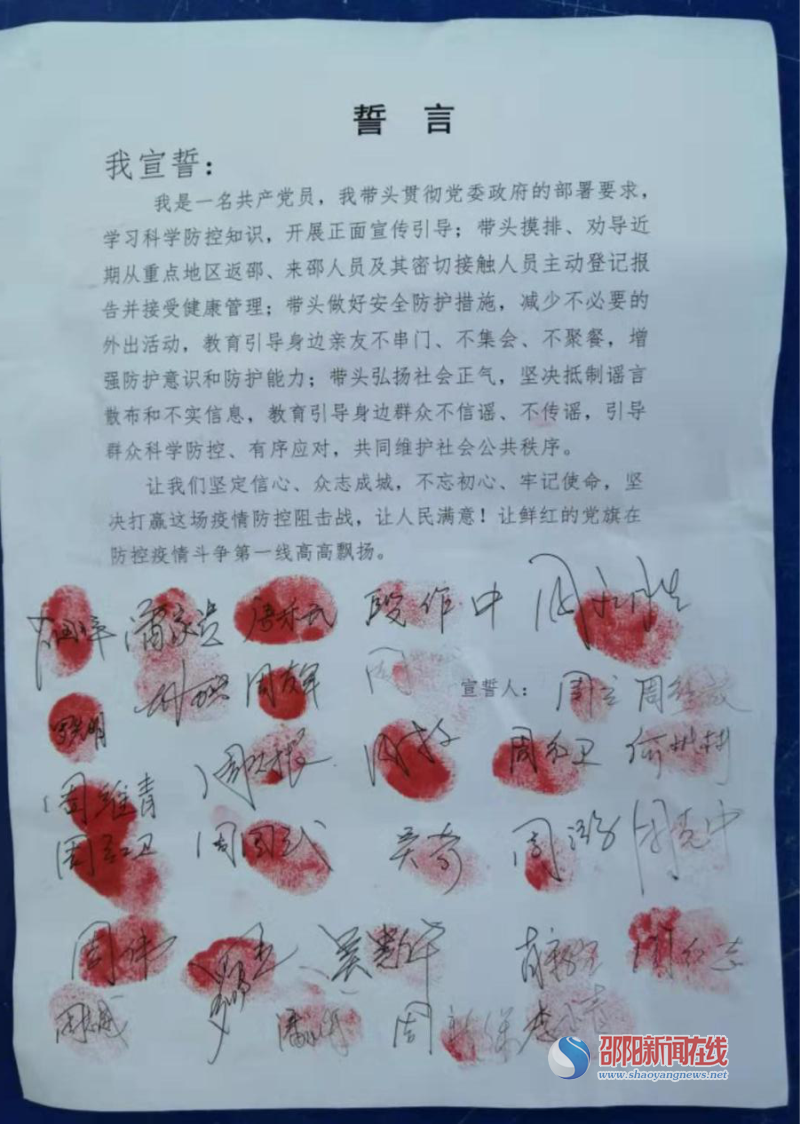 誓 言
我宣誓：
我是一名共产党员，我带头贯彻党委政府的部署要求，
学习科学防控知识，开展正面宣传引导；带头摸排、劝导近
期从重点地区返邵、来邵人员及其密切接触人员主动登记报
告并接受健康管理；带头做好安全防护措施，减少不必要的
外出活动，教育引导身边亲友不串门、不集会、不聚餐，增
强防护意识和防护能力；带头弘扬社会正气，坚决抵制谣言
散布和不实信息，教育引导身边群众不信谣、不传谣，引导
群众科学防控、有序应对，共同维护社会公共秩序。
让我们坚定信心、众志成城，不忘初心、牢记使命，坚
决打赢这场疫情防控阻击战，让人民满意！让鲜红的党旗在
防控疫情斗争第一线高高飘扬。
段作中
宣誓人：
周红卫
周维青
周红卫 吴奇
周伟
邵阳新闻在线
www.shaoyangnews.net